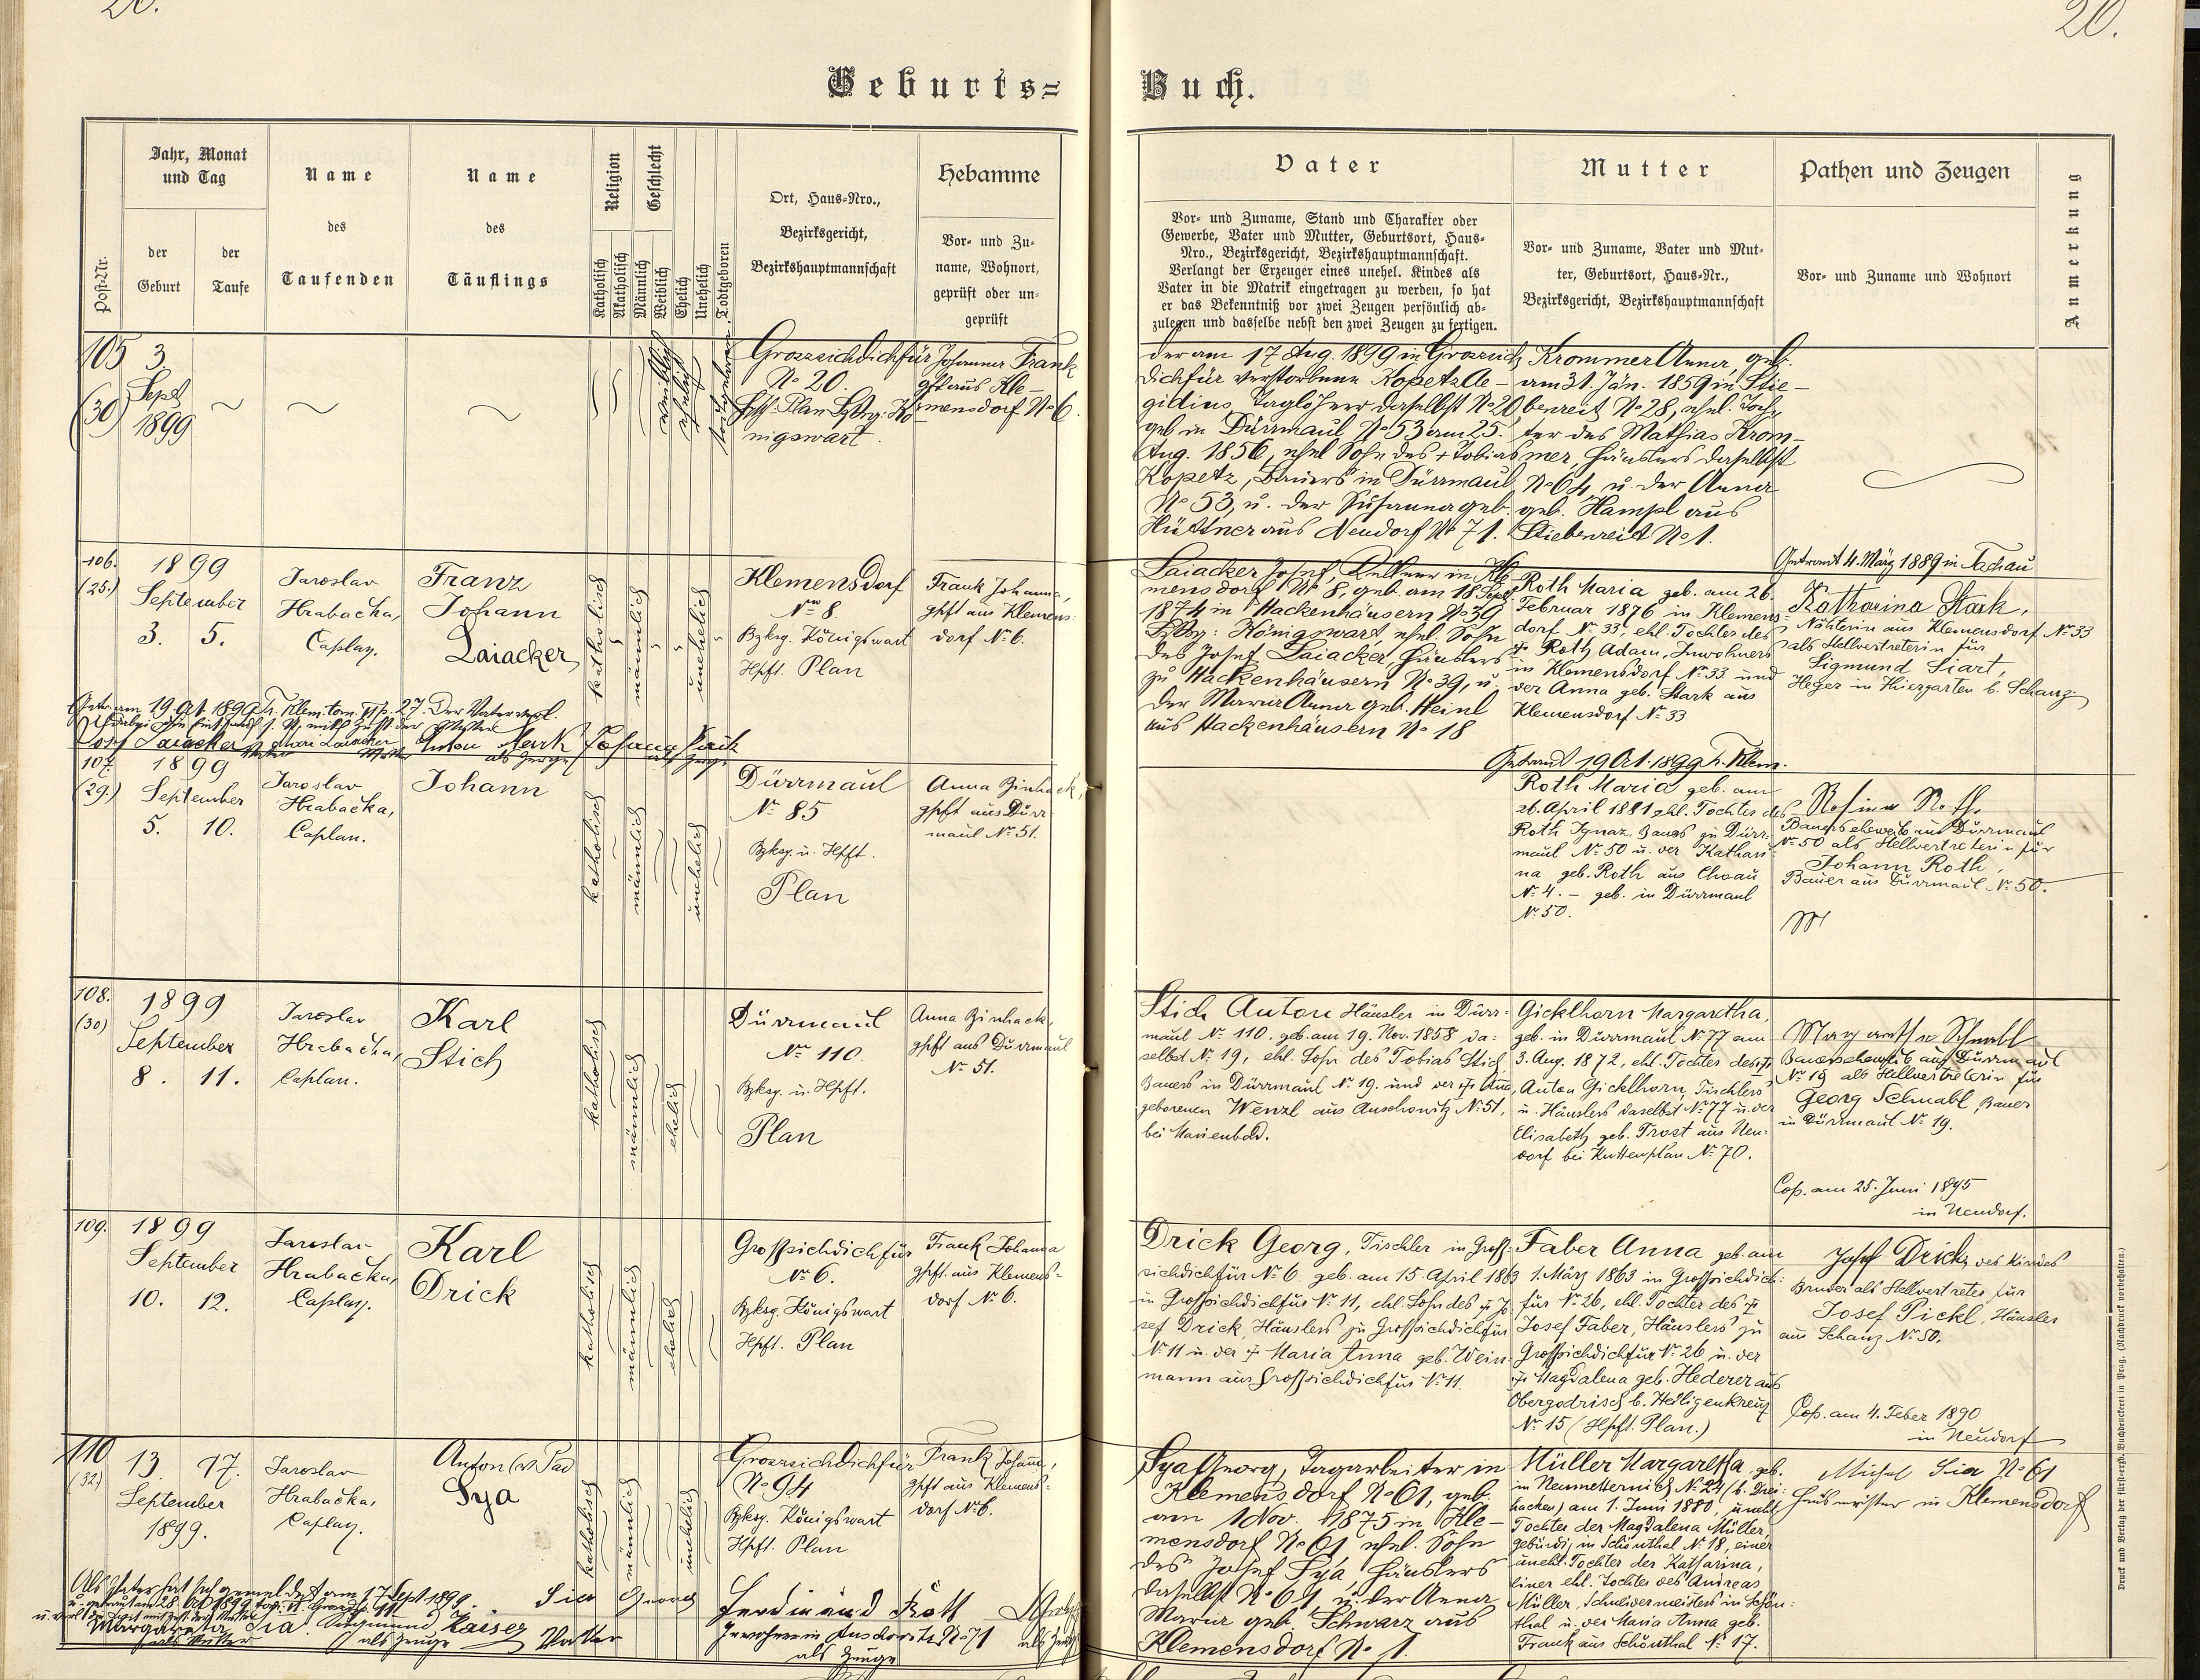 20.
20.
Geburts=
Buch.
Post-Nr.
Jahr, Monat
und Tag
der
Geburt
der
Taufe
Name
des
Taufenden
Name
des
Täuflings
Religion
Katholisch
Akatholisch
Geschlecht
Männlich
Weiblich
Ehelich
Unehelich
Todtgeboren
Ort, Haus=Nro.,
Bezirksgericht,
Bezirkshauptmannschaft
Hebamme
Vor= und Zu=
name, Wohnort,
geprüft oder un=
geprüft
Vater
Vor= und Zuname, Stand und Charakter oder
Gewerbe, Vater und Mutter, Geburtsort, Haus=
Nro., Bezirksgericht, Bezirkshauptmannschaft.
Verlangt der Erzeuger eines unehel. Kindes als
Vater in die Matrik eingetragen zu werden, so hat
er das Bekenntniß vor zwei Zeugen persönlich ab=
zulegen und dasselbe nebst den zwei Zeugen zu fertigen.
Mutter
Vor= und Zuname, Vater und Mut=
ter, Geburtsort, Haus=Nr.,
Bezirksgericht, Bezirkshauptmannschaft
Pathen und Zeugen
Vor= und Zuname und Wohnort
Anmerkung
105
(30)
3.
Sept
1899
weiblich
ehelich
todtgeboren
Grossichdichfür
No 20.
Plan
nigswart.
Johanna Frank
gpft aus Kle-
mensdorf No 6.
der am 17 Aug. 1899 in Grossich
dichfür verstorbene Kopetz Ae-
gidius, Taglöhner daselbst No 20
geb in Dürrmaul No 53 am 25.
Aug. 1856, ehel Sohn des + Tobias
Kopetz, Bauers in Dürrmaul
No 53, u. der Susanna geb.
Hüttner aus Neudorf No 71.
Krommer Anna, geb.
am 31. Jän. 1859 in Stie-
benreit No 28, ehel. Toch-
ter des Mathias Krom-
mer, Häuslers daselbst
No 64, u. der Anna
geb. Hampl aus
Stiebenreit No 1.
Getraut 4. März 1889 in Tachau
106.
(25.)
1899
September
3. 5.
Jaroslav
Hrabačka,
Caplan.
Franz
Johann
Laiacker
katholisch
männlich
unehelich
Klemensdorf
No 8.
Bzksg. Königswart
Hpft. Plan
Frank Johanna,
gpft aus Klemens-
dorf No 6.
Laiacker Josef, Kellner in Kle-
mensdorf No 8, geb. am 18 Sept.
1874 in Hackenhäusern No 39
Königswart, ehel. Sohn
des Josef Laiacker, Häuslers
zu Hackenhäusern No 39, u.
der Maria Anna geb. Heinl
aus Hackenhäusern No 18
Roth Maria geb. am 26.
Februar 1876 in Klemens-
dorf No 33, ehl. Tochter des
+ Roth Adam, Inwohners
in Klemensdorf No 33 und
der Anna geb. Stark aus
Klemensdorf No 33
Katharina Stark,
Nähterin aus Klemensdorf No 33
als Stellvertreterin für
Sigmund Siart,
Heger in Thiergarten b. Schanz
Getr. am 19 Okt. 1899
Josef Laiacker
Vater
Marie Laiacker
Mutter
als Zeuge
Getraut 19 Okt. 1899
107.
(29.)
1899
September
5. 10.
Jaroslav
Hrabačka,
Caplan.
Johann
katholisch
männlich
unehelich
Dürrmaul
No 85
Bzksg. u. Hpft.
Plan
Anna Zinhack,
gpft aus Dürr-
maul No 51.
Roth Maria geb. am
26. April 1881 ehl. Tochter des
Roth Ignaz, Bauers zu Dürr-
maul No 50 u. der Kathari-
na geb. Roth aus Choau
No 4. - geb. in Dürrmaul
No 50.
Rosina Roth,
Bauerseheweib aus Dürrmaul
No 50 als Stellvertreterin für
Johann Roth,
Bauer aus Dürrmaul No 50.
108.
(30)
1899
September
8. 11.
Jaroslav
Hrabačka,
Caplan.
Karl
Stich
katholisch
männlich
ehelich
Dürrmaul
No 110.
Bzksg. u. Hpft.
Plan
Anna Zinhack,
gpft aus Dürrmaul
No 51.
Stich Anton Häusler in Dürr-
maul No 110. geb. am 19. Nov. 1858 da-
selbst No 19, ehl. Sohn des Tobias Stich,
Bauers in Dürrmaul No 19. und der + Anna,
geborenen Wenzl aus Auschowitz No 51,
bei Marienbad.
Gicklhorn Margaretha,
geb. in Dürrmaul No 77 am
3. Aug. 1872, ehl. Tochter des +
Anton Gicklhorn, Tischlers
u. Häuslers daselbst No 77 u. der
Elisabeth geb. Trost aus Neu-
dorf bei Kuttenplan No 70.
Margaretha Schnabl
Bauerseheweib aus Dürrmaul
No 19 als Stellvertreterin für
Georg Schnabl, Bauer
in Dürrmaul No 19.
Cop. am 25. Juni 1895
in Neudorf.
109.
1899
September
10. 12.
Jaroslav
Hrabačka,
Caplan.
Karl
Drick
katholisch
männlich
ehelich
Großsichdichfür
No 6.
Bzksg. Königswart
Hpft. Plan
Frank Johanna
gpft. aus Klemens-
dorf No 6.
Drick Georg, Tischler in Groß-
sichdichfür No 6. geb. am 15. April 1863
in Großsichdichfür No 11, ehl. Sohn des + Jo-
sef Drick, Häuslers zu Großsichdichfür
No 11 u. der + Maria Anna geb. Wein-
mann aus Großsichdichfür No 11.
Faber Anna geb. am
1. März 1863 in Großsichdich-
für No 26, ehl. Tochter des +
Josef Faber, Häuslers zu
Großsichdichfür No 26 u. der
+ Magdalena geb. Hederer aus
Obergodrisch b. Heiligenkreuz
No 15 (Hpft. Plan.)
Josef Drick, des Kindes
Bruder als Stellvertreter für
Josef Pickl, Häusler
aus Schanz No 50.
Cop. am 4. Feber 1890
in Neudorf
110
(32)
13. 17.
September
1899.
Jaroslav
Hrabačka,
Caplan.
Anton
Sya
katholisch
männlich
unehelich
Grossichdichfür
No 94
Bzksg. Königswart
Hpft. Plan
Frank Johanna,
gpft aus Klemens-
dorf No 6.
Sya Georg, Tagarbeiter in
Klemensdorf No 61, geb.
am 1 Nov. 1875 in Kle-
mensdorf No 61 ehel. Sohn
des Josef Sya, Häuslers
daselbst No 61, u. der Anna
Maria geb. Schwarz aus
Klemensdorf No 1.
Müller Margaretha, geb.
in Neumetternich No 24 (b. Drei-
hacken) am 1. Juni 1880, unehl.
Tochter der Magdalena Müller,
gebürtig in Schönthal No 18, einer
unehl. Tochter der Katharina,
einer ehl. Tochter des Andreas
Müller, Schneidermeisters in Schön-
thal u. der Maria Anna geb.
Frank aus Schönthal No 17.
Michael Sia No 61
Hausmeister in Klemensdorf
Als Vater hat sich gemeldet am 17 Sept 1899
Sia Georg
Vatter
Margareta Sia
als Mutter
Kaiser
als Zeuge
Ferdinand Roth
als Zeuge
Druck und Verlag der fürst-erzb. Buchdruckerei in Prag. (Nachdruck vorbehalten.)